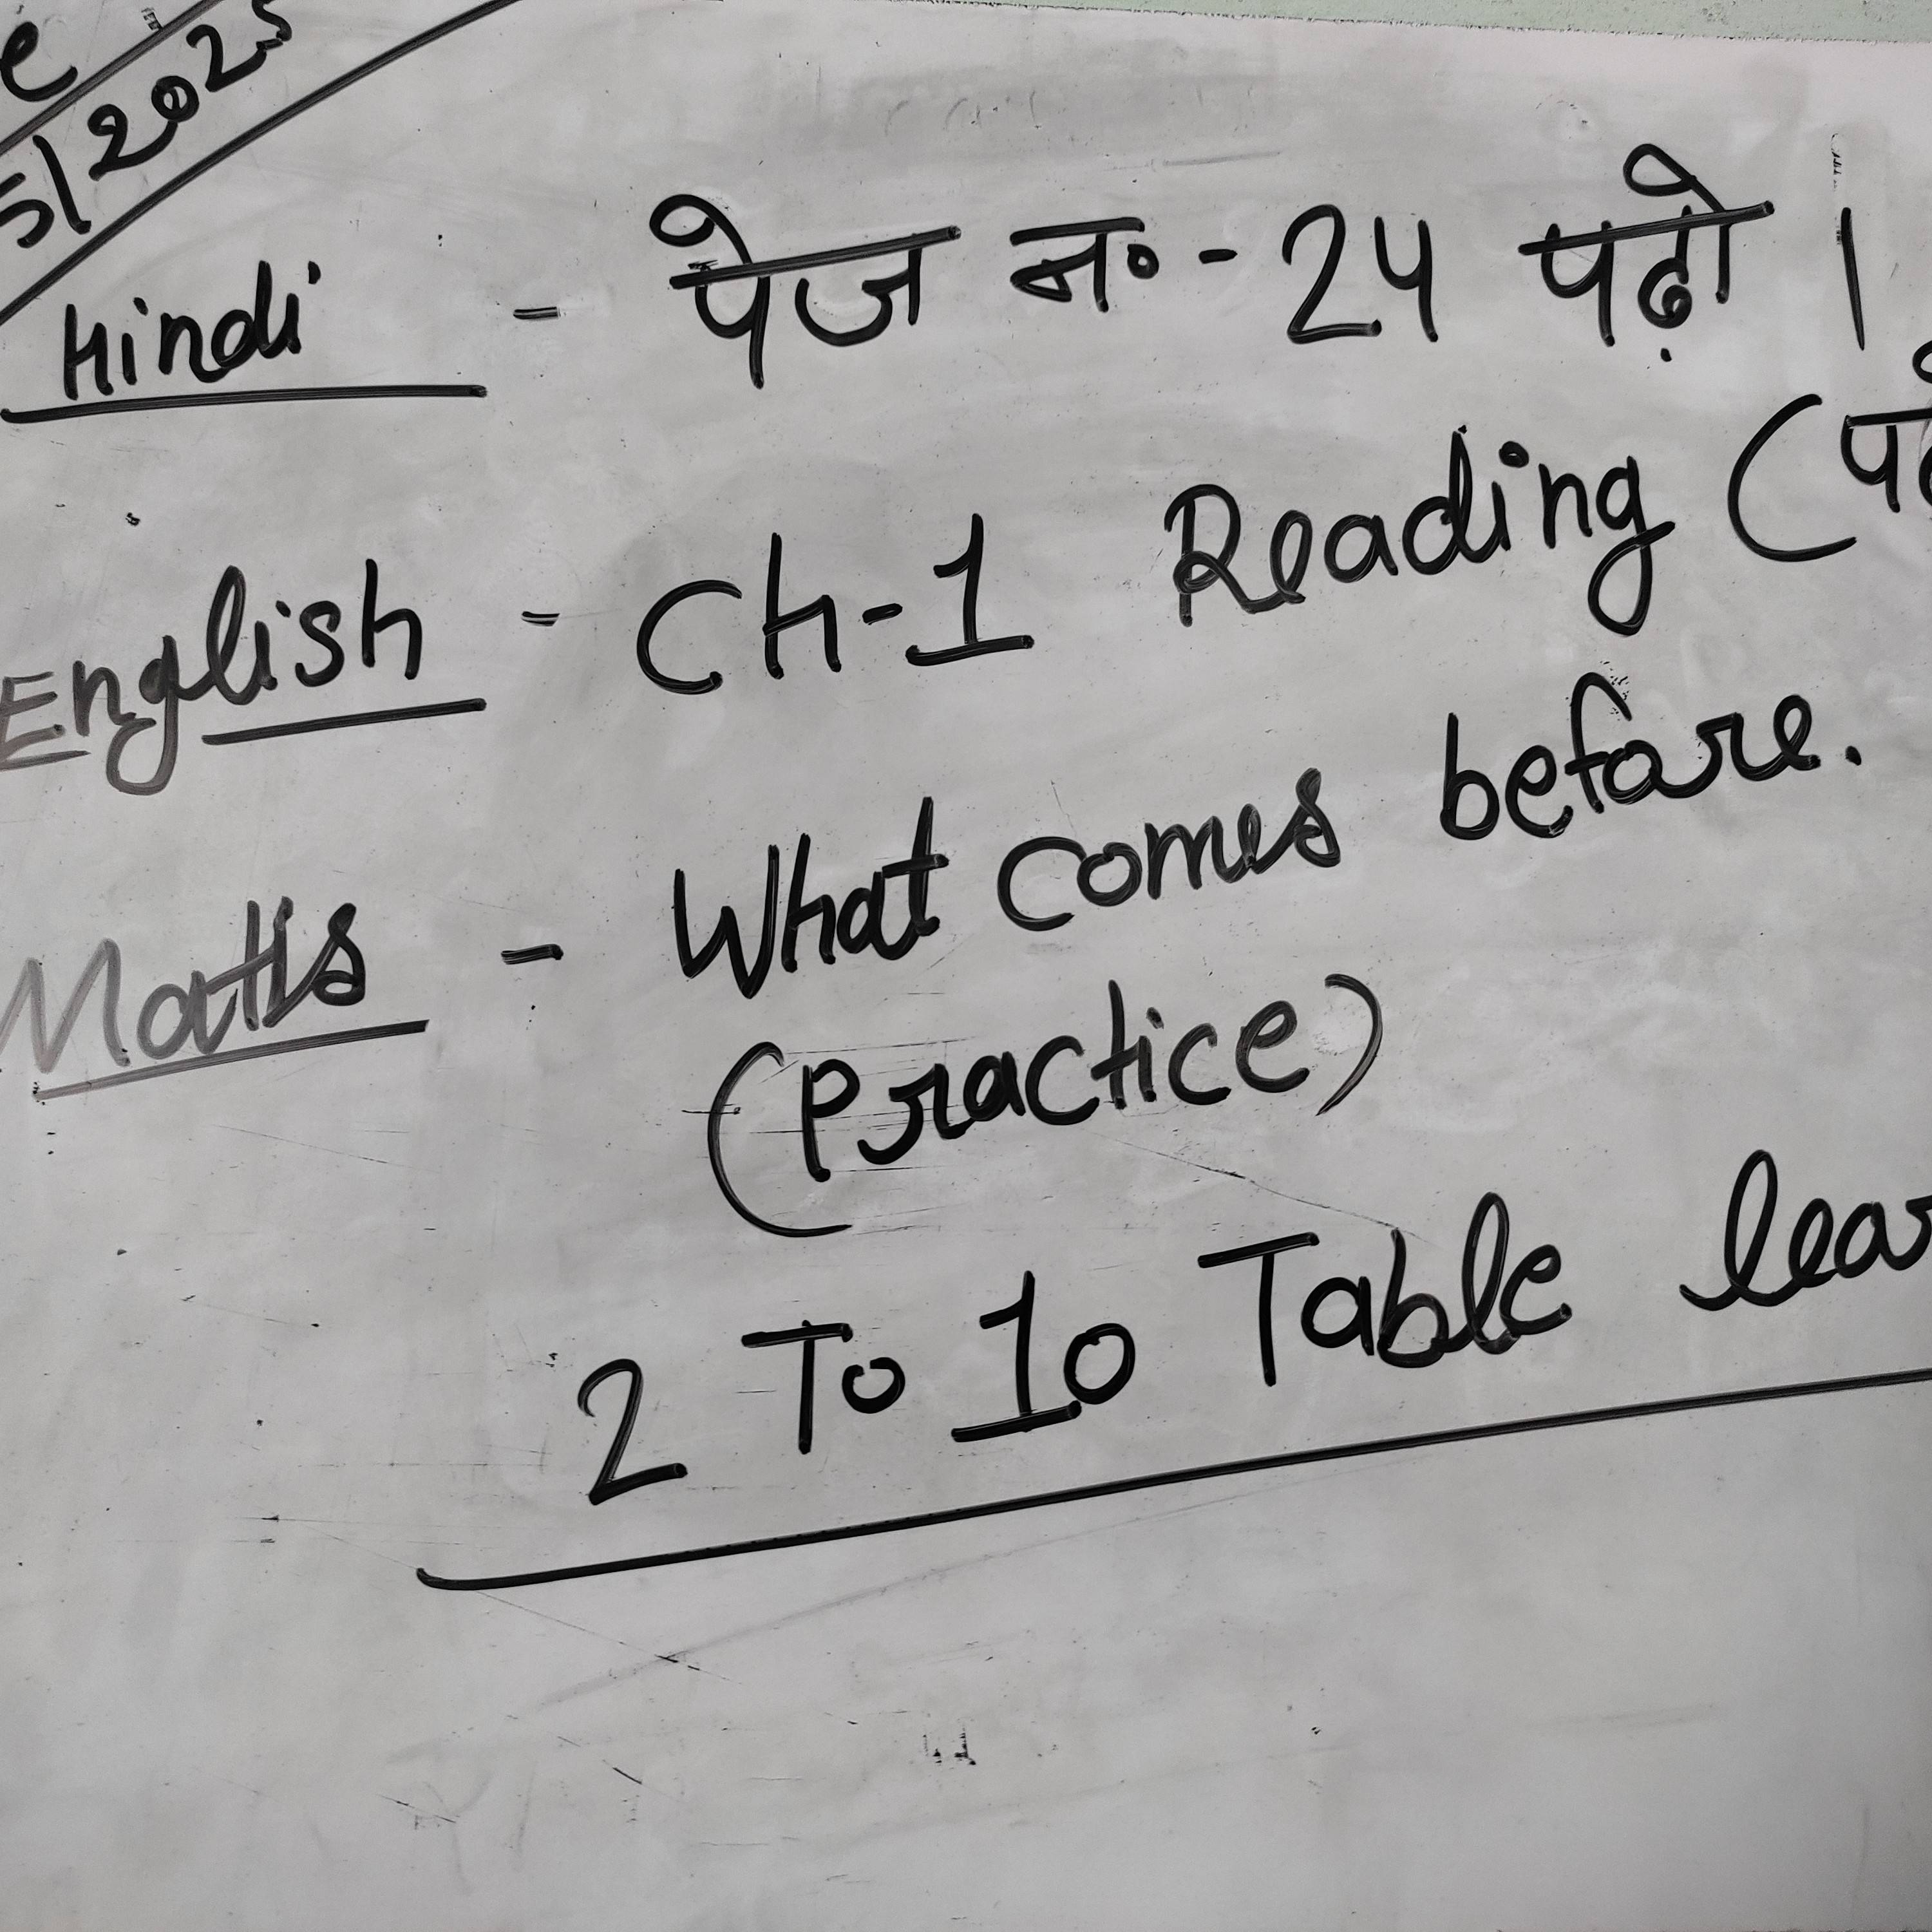 5/2025
Hindi - पेज न॰ - 24 पढ़ो ।
English - Ch-1 Reading (
Maths - What comes before.
(Practice)
2 To 10 Table